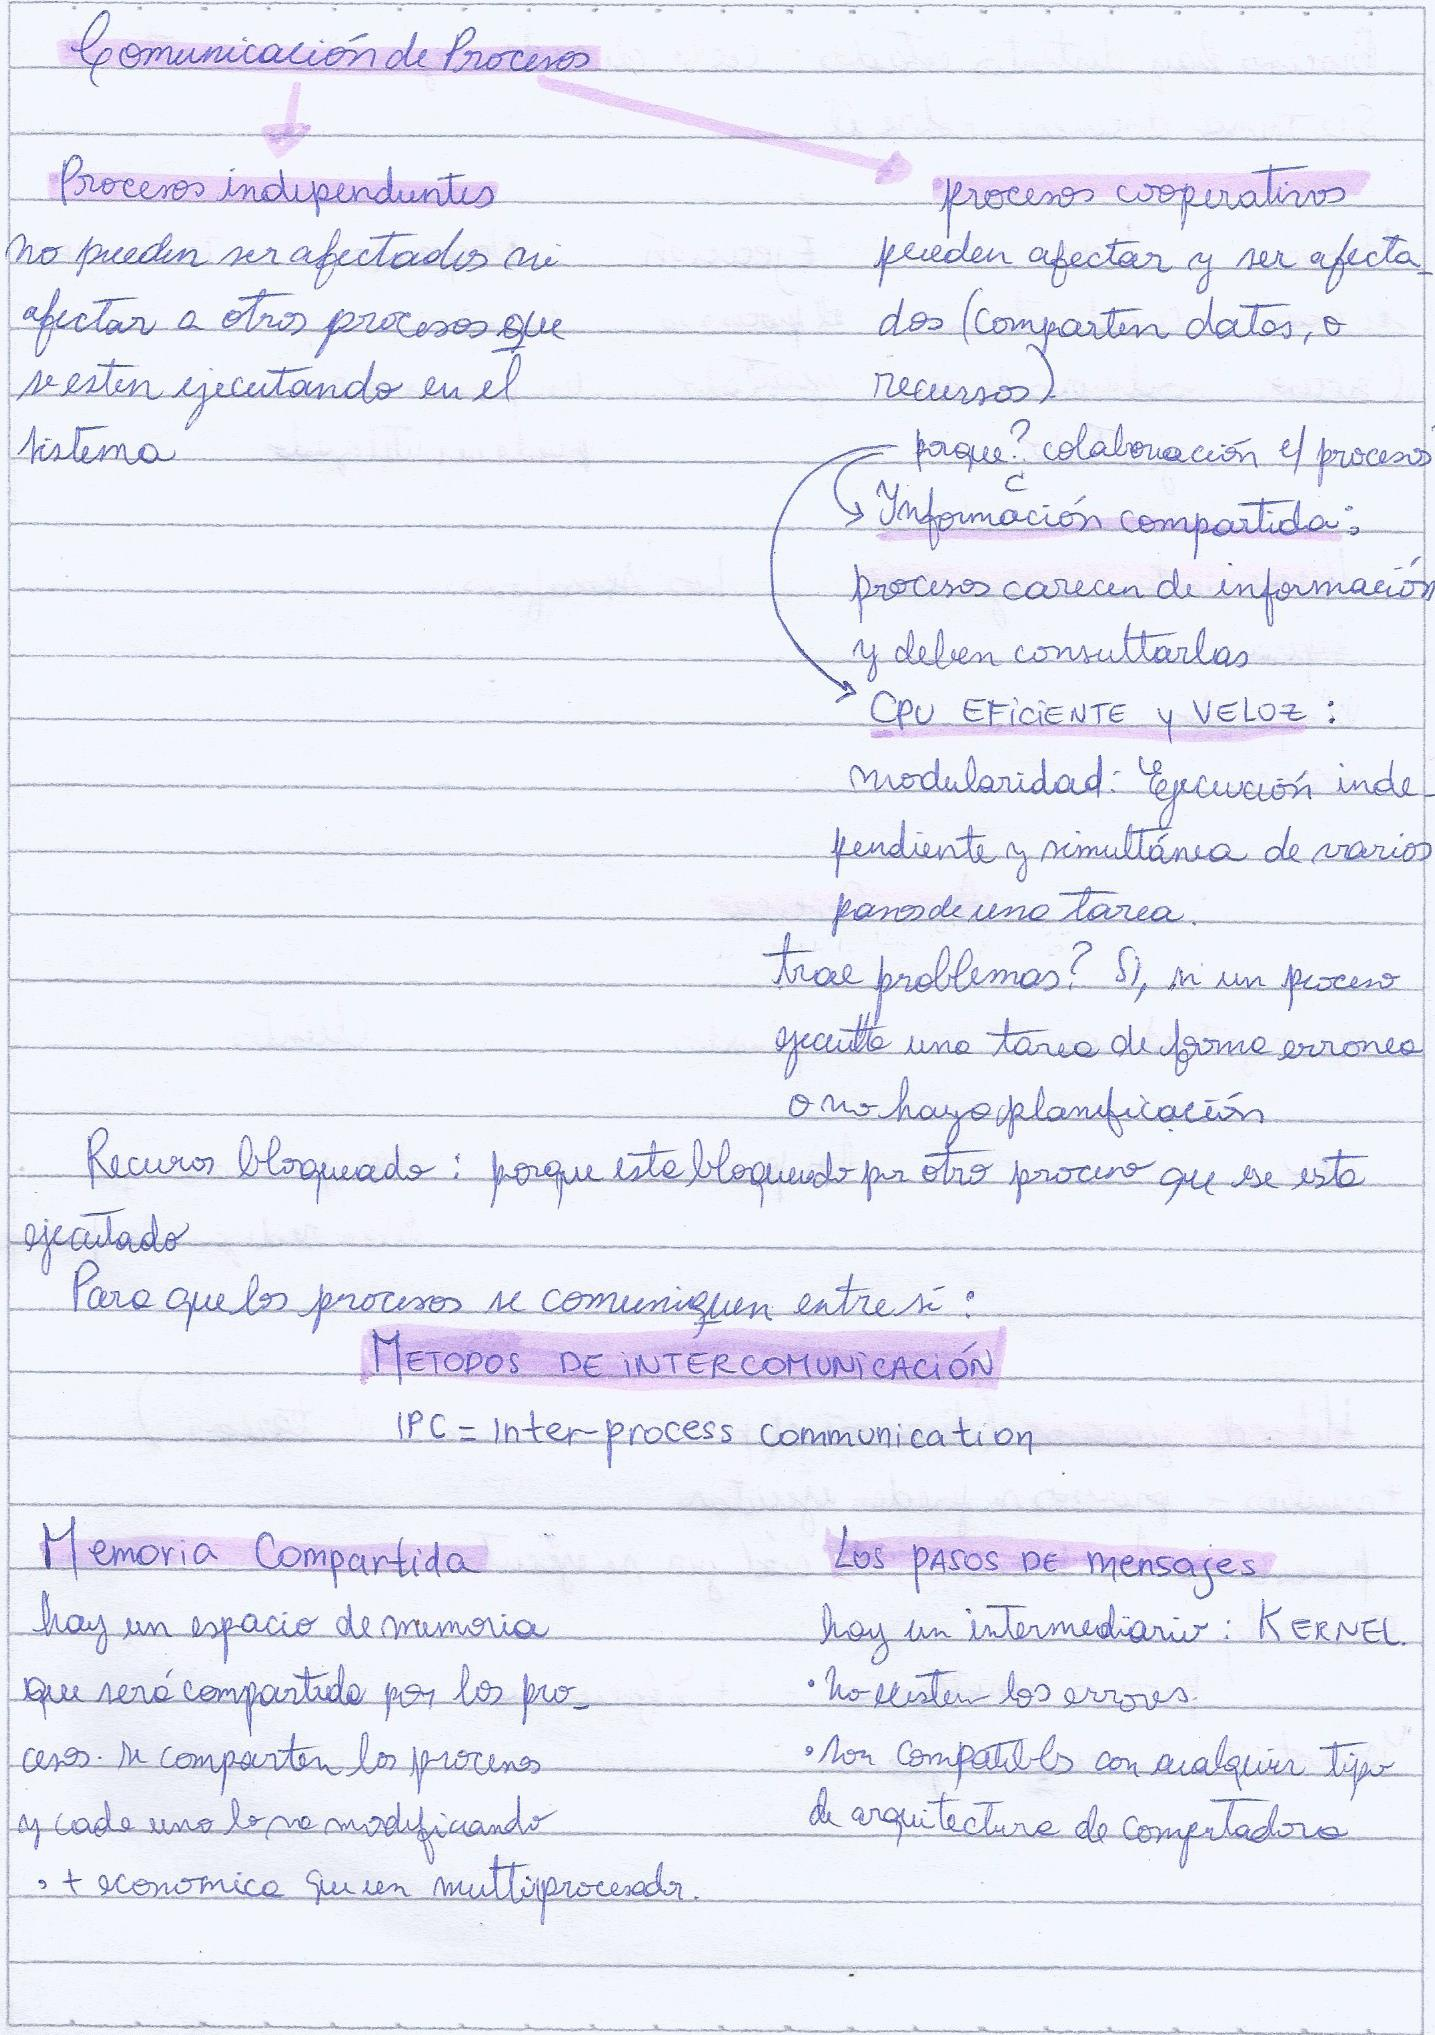 Comunicación de Procesos
Procesos independientes
no pueden ser afectados ni
afectar a otros procesos que
se esten ejecutando en el
sistema
procesos cooperativos
pueden afectar y ser afecta-
dos (Comparten datos, o
recursos)
porque? colaboración e/ procesos
Información compartida:
procesos carecen de información
y deben consultarlas
CPU EFICIENTE y VELOZ :
modularidad: Ejecución inde-
pendiente y simultánea de varios
pasos de una tarea.
trae problemas? Sí, si un proceso
ejecuta una tarea de forma erronea
o no haya planificación
Recurso bloqueado : porque esta bloqueado por otro proceso que se esta
ejecutado
Para que los procesos se comuniquen entre sí :
METODOS DE INTERCOMUNICACIÓN
IPC = Inter-process communication
Memoria Compartida
hay un espacio de memoria
que será compartida por los pro-
cesos. se comparten los procesos
y cada uno lo va modificando
• + economica que un multiprocesador.
Los PASOS DE mensajes
hay un intermediario : KERNEL.
• No existen los errores.
• son compatibles con cualquier tipo
de arquitectura de computadora